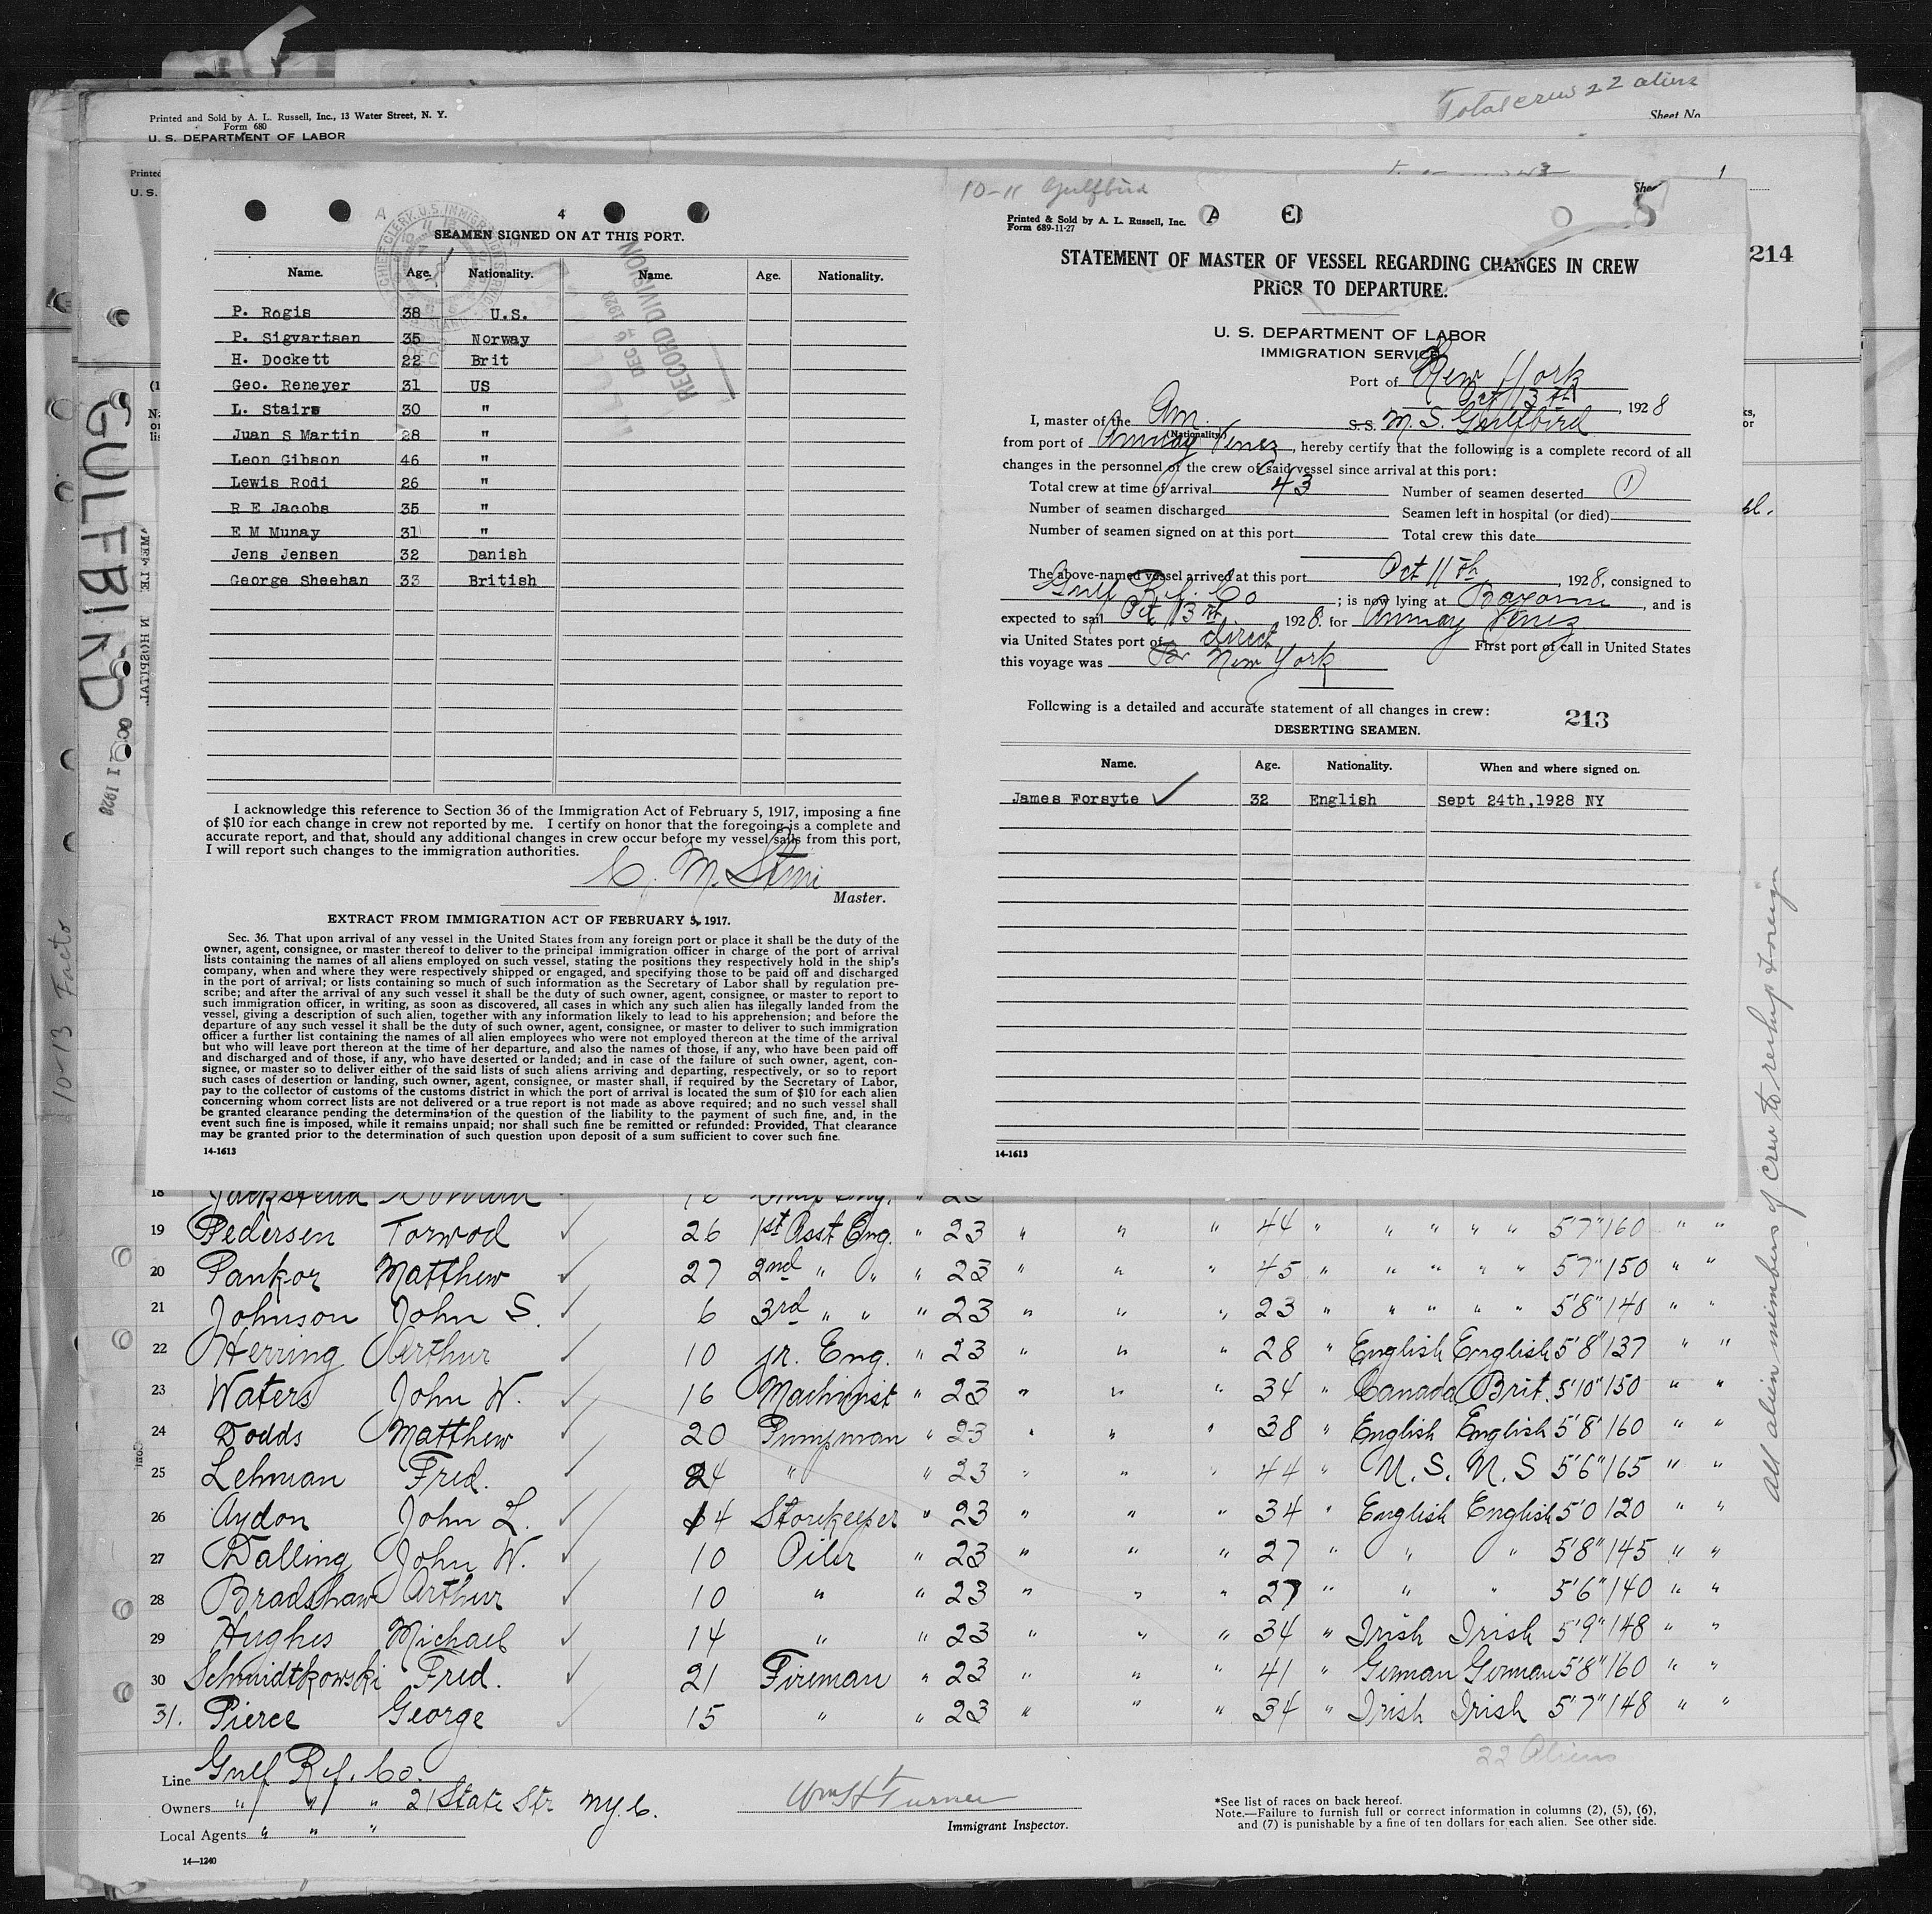 Total crew 22 aliens
Printed and Sold by A. L. Russell, Inc., 13 Water Street, N. Y.
Form 680
U. S. DEPARTMENT OF LABOR
Sheet No.
Printed
U. S.
214
GULFBIRD
1928
10-13 Facto
4
SEAMEN SIGNED ON AT THIS PORT.
Name. Age. Nationality. Name. Age. Nationality.
P. Rogis 38 U.S.
P. Sigvartsen 35 Norway
H. Dockett 22 Brit
Geo. Reneyer 31 US
L. Stairs 30 "
Juan S Martin 28 "
Leon Gibson 46 "
Lewis Rodi 26 "
R E Jacobs 35 "
E M Munay 31 "
Jens Jensen 32 Danish
George Sheehan 33 British
RECORD DIVISION
DEC 6 1928
I acknowledge this reference to Section 36 of the Immigration Act of February 5, 1917, imposing a fine
of $10 for each change in crew not reported by me. I certify on honor that the foregoing is a complete and
accurate report, and that, should any additional changes in crew occur before my vessel sails from this port,
I will report such changes to the immigration authorities.
C. M.
Master.
EXTRACT FROM IMMIGRATION ACT OF FEBRUARY 5, 1917.
Sec. 36. That upon arrival of any vessel in the United States from any foreign port or place it shall be the duty of the
owner, agent, consignee, or master thereof to deliver to the principal immigration officer in charge of the port of arrival
lists containing the names of all aliens employed on such vessel, stating the positions they respectively hold in the ship's
company, when and where they were respectively shipped or engaged, and specifying those to be paid off and discharged
in the port of arrival; or lists containing so much of such information as the Secretary of Labor shall by regulation pre-
scribe; and after the arrival of any such vessel it shall be the duty of such owner, agent, consignee, or master to report to
such immigration officer, in writing, as soon as discovered, all cases in which any such alien has illegally landed from the
vessel, giving a description of such alien, together with any information likely to lead to his apprehension; and before the
departure of any such vessel it shall be the duty of such owner, agent, consignee, or master to deliver to such immigration
officer a further list containing the names of all alien employees who were not employed thereon at the time of the arrival
but who will leave port thereon at the time of her departure, and also the names of those, if any, who have been paid off
and discharged and of those, if any, who have deserted or landed; and in case of the failure of such owner, agent, con-
signee, or master so to deliver either of the said lists of such aliens arriving and departing, respectively, or so to report
such cases of desertion or landing, such owner, agent, consignee, or master shall, if required by the Secretary of Labor,
pay to the collector of customs of the customs district in which the port of arrival is located the sum of $10 for each alien
concerning whom correct lists are not delivered or a true report is not made as above required; and no such vessel shall
be granted clearance pending the determination of the question of the liability to the payment of such fine, and, in the
event such fine is imposed, while it remains unpaid; nor shall such fine be remitted or refunded: Provided, That clearance
may be granted prior to the determination of such question upon deposit of a sum sufficient to cover such fine.
14-1613
10-11 Gulfbird
Printed & Sold by A. L. Russell, Inc.
Form 689-11-27
A E
STATEMENT OF MASTER OF VESSEL REGARDING CHANGES IN CREW
PRIOR TO DEPARTURE.
U. S. DEPARTMENT OF LABOR
IMMIGRATION SERVICE
Port of New York
Oct 13th, 1928
I, master of the Am. S.S. M.S. Gulfbird
(Nationality)
from port of Amuay Venez, hereby certify that the following is a complete record of all
changes in the personnel of the crew of said vessel since arrival at this port:
Total crew at time of arrival 43 Number of seamen deserted 1
Number of seamen discharged Seamen left in hospital (or died)
Number of seamen signed on at this port Total crew this date
The above-named vessel arrived at this port Oct 11th, 1928, consigned to
Gulf Ref. Co; is now lying at Bayonne, and is
expected to sail Oct 13th 1928. for Amuay Venez
via United States port of direct First port of call in United States
this voyage was New York
Following is a detailed and accurate statement of all changes in crew: 213
DESERTING SEAMEN.
Name. Age. Nationality. When and where signed on.
James Forsyte 32 English Sept 24th,1928 NY
14-1613
All alien members of crew to reship foreign
18
19 Pedersen Torwod 26 1st Asst Eng. " 23 " " " 44 " " " " " 5'7" 160 " "
20 Pankor Matthew 27 2nd " " " 23 " " " 45 " " " " " 5'7" 150 " "
21 Johnson John S. 6 3rd " " " 23 " " " 23 " " " " " 5'8" 140 " "
22 Herring Arthur 10 jr. Eng. " 23 " " " 28 " English English 5'8" 137 " "
23 Waters John W. 16 Machinist " 23 " " " 34 " Canada Brit. 5'10" 150 " "
24 Dodds Matthew 20 Pumpman " 23 " " " 38 " English English 5'8" 160 " "
25 Lehman Fred. 24 " " 23 " " " 44 " U.S. U.S 5'6" 165 " "
26 Aydon John L. 14 Storekeeper " 23 " " " 34 " English English 5'0 120 " "
27 Dalling John W. 10 Oiler " 23 " " " 27 " " " 5'8" 145 " "
28 Bradshaw Arthur 10 " " 23 " " " 27 " " " 5'6" 140 " "
29 Hughes Michael 14 " " 23 " " " 34 " Irish Irish 5'9" 148 " "
30 Schmidtkowski Fred. 21 Fireman " 23 " " " 41 " German German 5'8" 160 " "
31. Pierce George 15 " " 23 " " " 34 " Irish Irish 5'7" 148 " "
22 Aliens
Line Gulf Ref. Co.
Owners " " " 21 State Str N.Y.C.
Local Agents " " "
Wm H Turner
Immigrant Inspector.
*See list of races on back hereof.
Note.—Failure to furnish full or correct information in columns (2), (5), (6),
and (7) is punishable by a fine of ten dollars for each alien. See other side.
14—1240